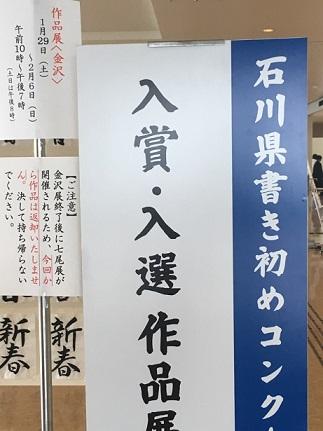 石川県書き初めコンク
入賞・入選作品展
作品展〈金沢〉
1月29日（土）
～2月6日（日）
午前10時～午後7時
（土日は午後6時）
【ご注意】
金沢展終了後に七尾展が
開催されるため、今回か
ら作品は返却いたしませ
ん。決して持ち帰らない
でください。
新春
新春